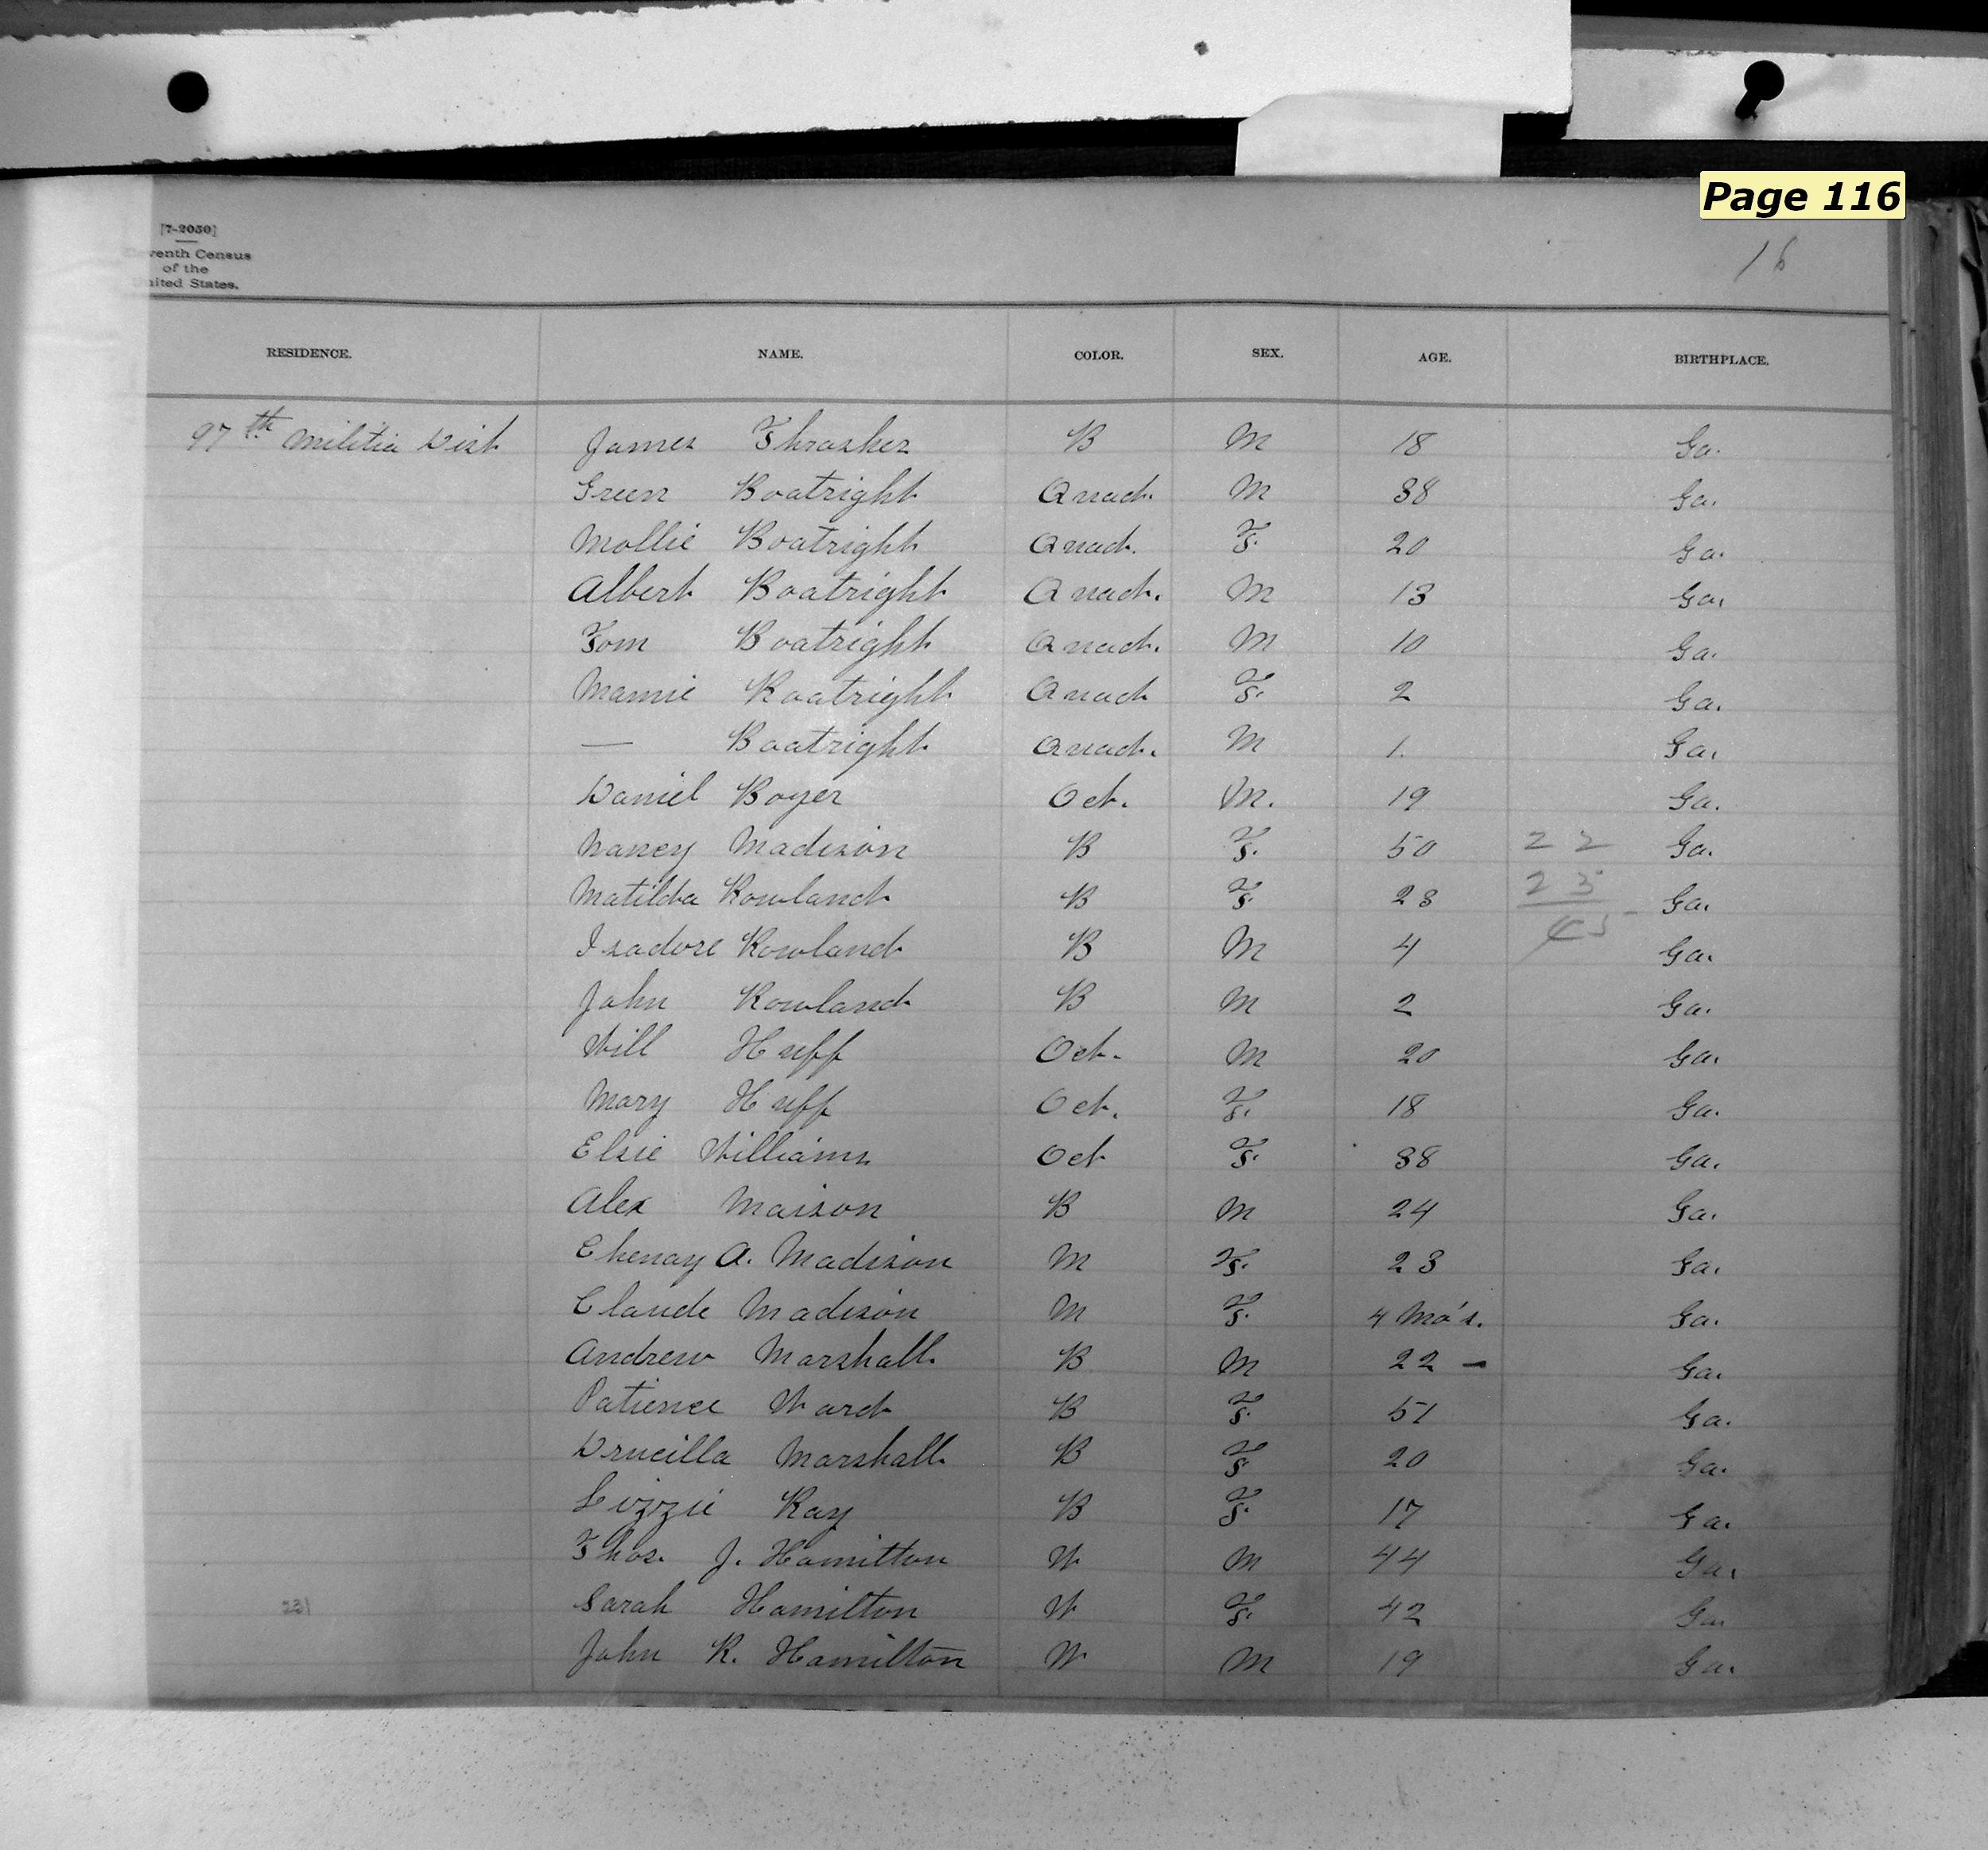 Page 116
[7-2050]
venth Census
of the
nited States.
16
RESIDENCE. NAME. COLOR. SEX. AGE. BIRTHPLACE.
97th Militia Dist James Thrasher B M 18 Ga.
Green Boatright Quad. M 38 Ga.
Mollie Boatright Quad. F. 20 Ga.
Albert Boatright Quad. M 13 Ga.
Tom Boatright Quad. M 10 Ga.
Mamie Boatright Quad F. 2 Ga.
— Boatright Quad. M 1. Ga.
Daniel Boyer Oct. M. 19 Ga.
Nancy Madison B F. 50 22 Ga.
Matilda Rowland B F. 23 23 Ga.
45
Isadore Rowland B M 4 Ga.
John Rowland B M 2 Ga.
Will Huff Oct. M 20 Ga.
Mary Huff Oct. F. 18 Ga.
Elsie Williams Oct F. 38 Ga.
Alex Maison B M 24 Ga.
Chenay A. Madison M F. 23 Ga.
Claude Madison M F. 4 Mo's. Ga.
Andrew Marshall B M 22 — Ga.
Patience Ward B F. 51 Ga.
Drucilla Marshall B F 20 Ga.
Lizzie Ray B F. 17 Ga.
Thos. J. Hamilton W M 44 Ga.
231 Sarah Hamilton W F. 42 Ga.
John R. Hamilton W M 19 Ga.